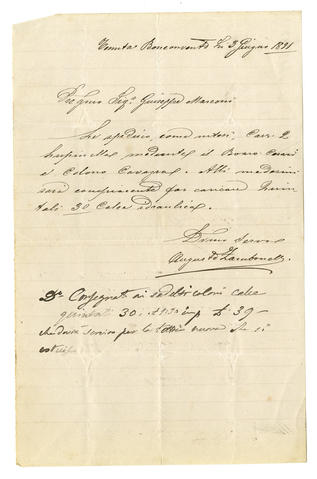 Tenuta Bonconvento li 3 Giugno 1891
Pregmo Sigr Giuseppe Marconi
Le spedisco, come intesi, Carr. 2
mediante il Boaro
e Colono Cavazza. Alli medesimi
sarà compiacente far caricare Quin
tali 30 Calce idraulica.
Devmo Servo
Augusto Zambonelli
Consegnati ai sudetti coloni calce
quintali 30 a £ 1.30 imp £ 39 -
che deve servire per la nuova che si